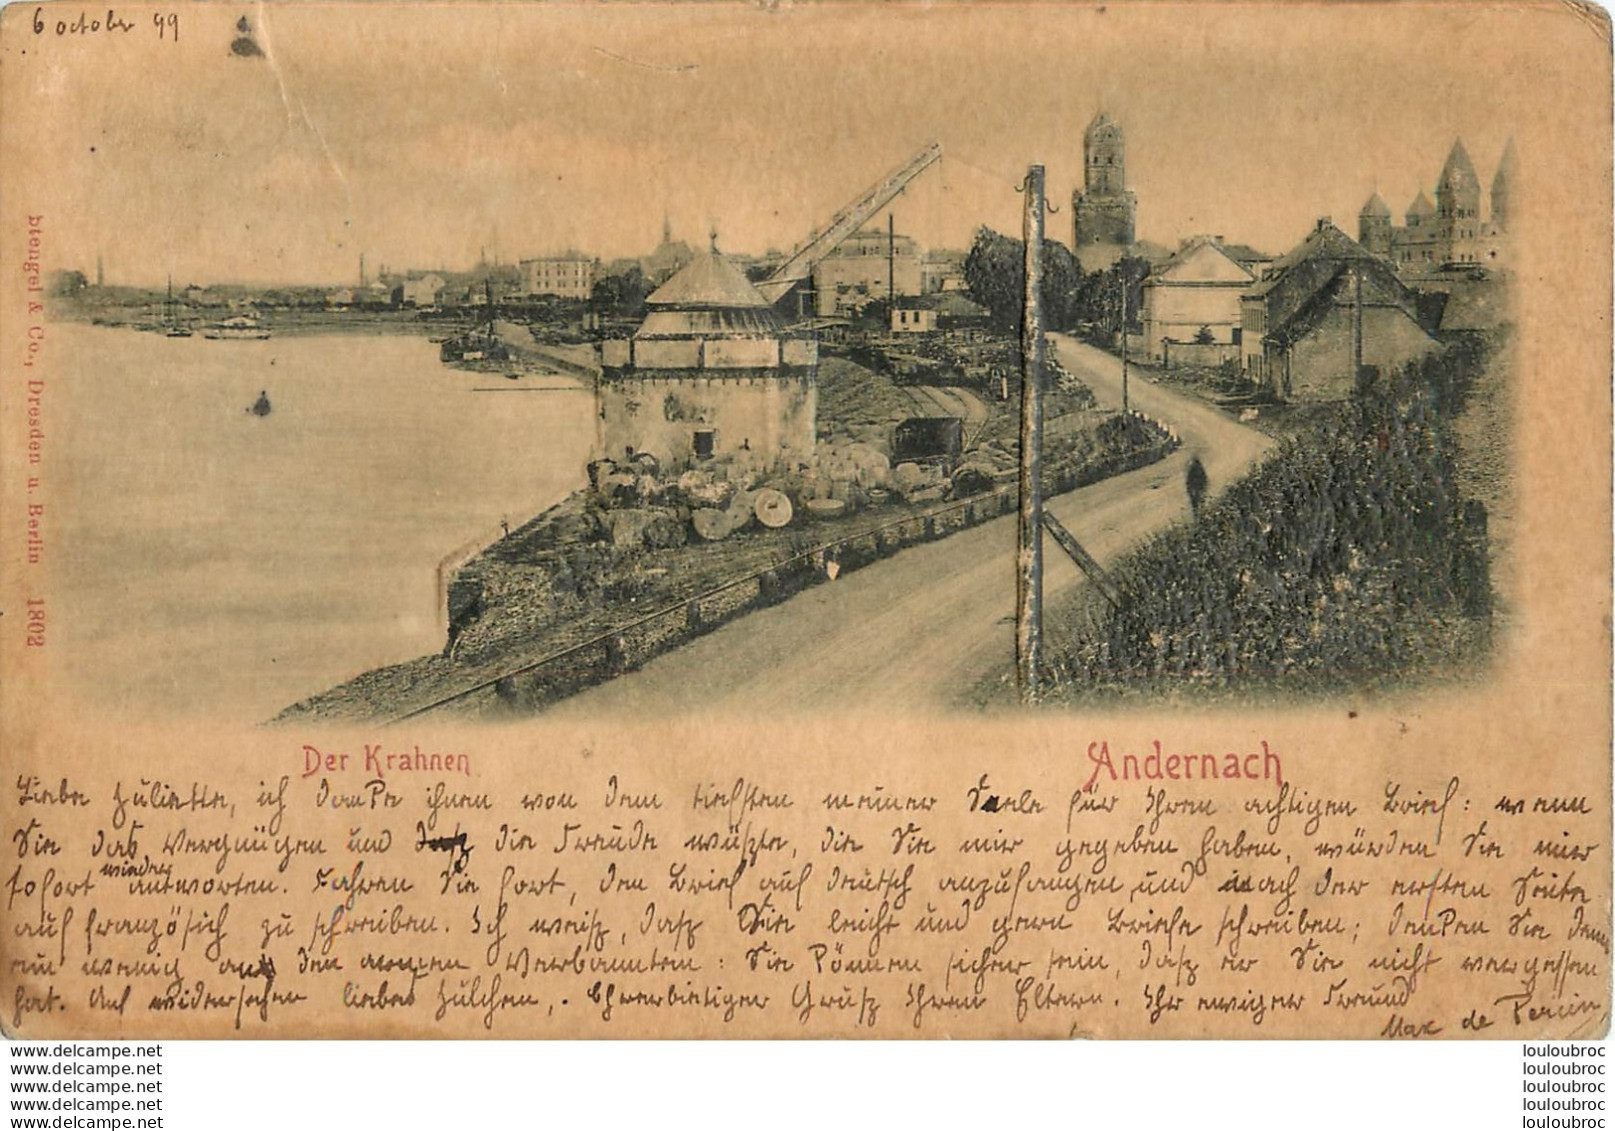 6 october 99
Stengel & Co., Dresden u. Berlin 1802
Der Krahnen
Andernach
Liebe Züliette, ich danke ihnen von dem tiefsten meiner Seele für Ihren artigen Brief: wenn
Sie das Vergnügen und die Freude wüßte, die Sie mir gegeben haben, würden Sie mir
sofort wieder antworten. Fahren Sie fort, den Brief auf deutsch anzufangen und nach der ersten Seite
auf französich zu schreiben. Ich weiß, daß Sie leicht und gern Briefe schreiben; denken Sie denn
ein wenig an den armen Verbannten: Sie können sicher sein, daß er Sie nicht vergessen
hat. Auf widersehen liebes Zülchen, . Ehrerbietiger Gruß Ihren Eltern. Ihr ewiger Freund
Max de
www.delcampe.net louloubroc
www.delcampe.net louloubroc
www.delcampe.net louloubroc
www.delcampe.net louloubroc
www.delcampe.net louloubroc